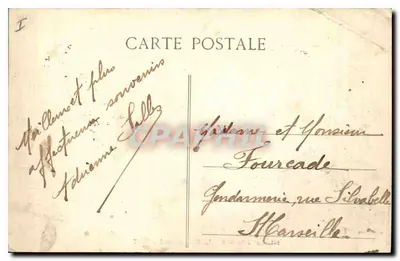 I
CARTE POSTALE
Meilleurs et plus
affectueux souvenirs
Adrienne
Madame et Monsieur
Fourcade
Gendarmerie, rue Silvabelle
Marseille